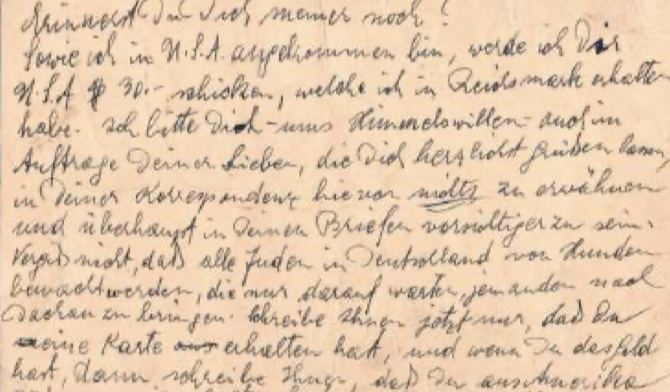 Erinnerst Du Dich meiner noch?
Sowie ich in U.S.A. angekommen bin, werde ich Dir
U.S.A $ 30.- schicken, welche ich in Reichsmark erhalten
habe. Ich bitte Dich - ums Himmelswillen - auch im
Auftrage Deiner Lieben, die Dich herzlichst grüßen lassen,
in Deiner Korrespondenz hievon nichts zu erwähnen
und überhaupt in Deinen Briefen vorsichtiger zu sein.
Vergiß nicht, daß alle Juden in Deutschland von Hunden
bewacht werden, die nur darauf warten, jemanden nach
Dachau zu bringen. Schreibe Ihnen jetzt nur, daß Du
eine Karte erhalten hast, und wenn Du das Geld
hast, dann schreibe Ihnen, daß Du aus Amerika